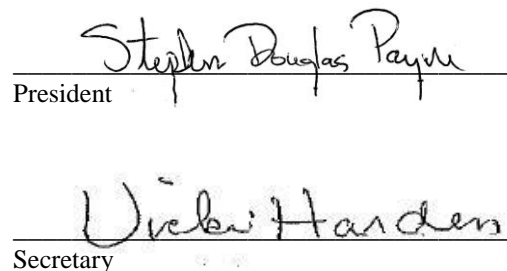 Stephen Douglas Payne
President
Vicki Harden
Secretary